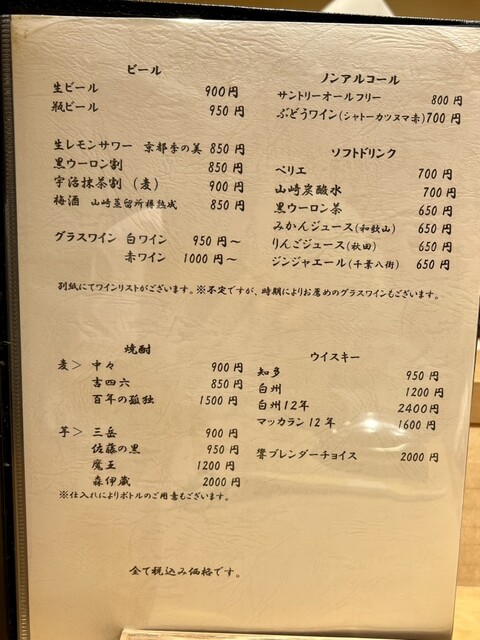 ビール
生ビール 900円
瓶ビール 950円
生レモンサワー 京都季の美 850円
黒ウーロン割 850円
宇治抹茶割（麦） 900円
梅酒 山崎蒸留所樽熟成 850円
グラスワイン 白ワイン 950円～
赤ワイン 1000円～
ノンアルコール
サントリーオールフリー 800円
ぶどうワイン(シャトーカツヌマ赤)700円
ソフトドリンク
ペリエ 700円
山崎炭酸水 700円
黒ウーロン茶 650円
みかんジュース(和歌山) 650円
りんごジュース(秋田) 650円
ジンジャエール(千葉八街) 650円
別紙にてワインリストがございます。※不定ですが、時期によりお薦めのグラスワインもございます。
焼酎
麦＞ 中々 900円
吉四六 850円
百年の孤独 1500円
芋＞ 三岳 900円
佐藤の黒 950円
魔王 1200円
森伊蔵 2000円
※仕入れによりボトルのご用意もございます。
ウイスキー
知多 950円
白州 1200円
白州12年 2400円
マッカラン12年 1600円
響ブレンダーチョイス 2000円
全て税込み価格です。